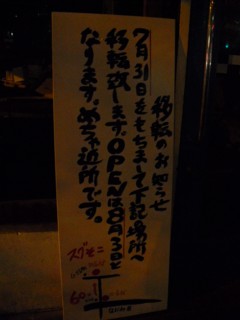 移転のお知らせ
7月31日をもちまして下記場所へ
移転致します。OPENは8月3日と
なります。めちゃ近所です。
スグそこ